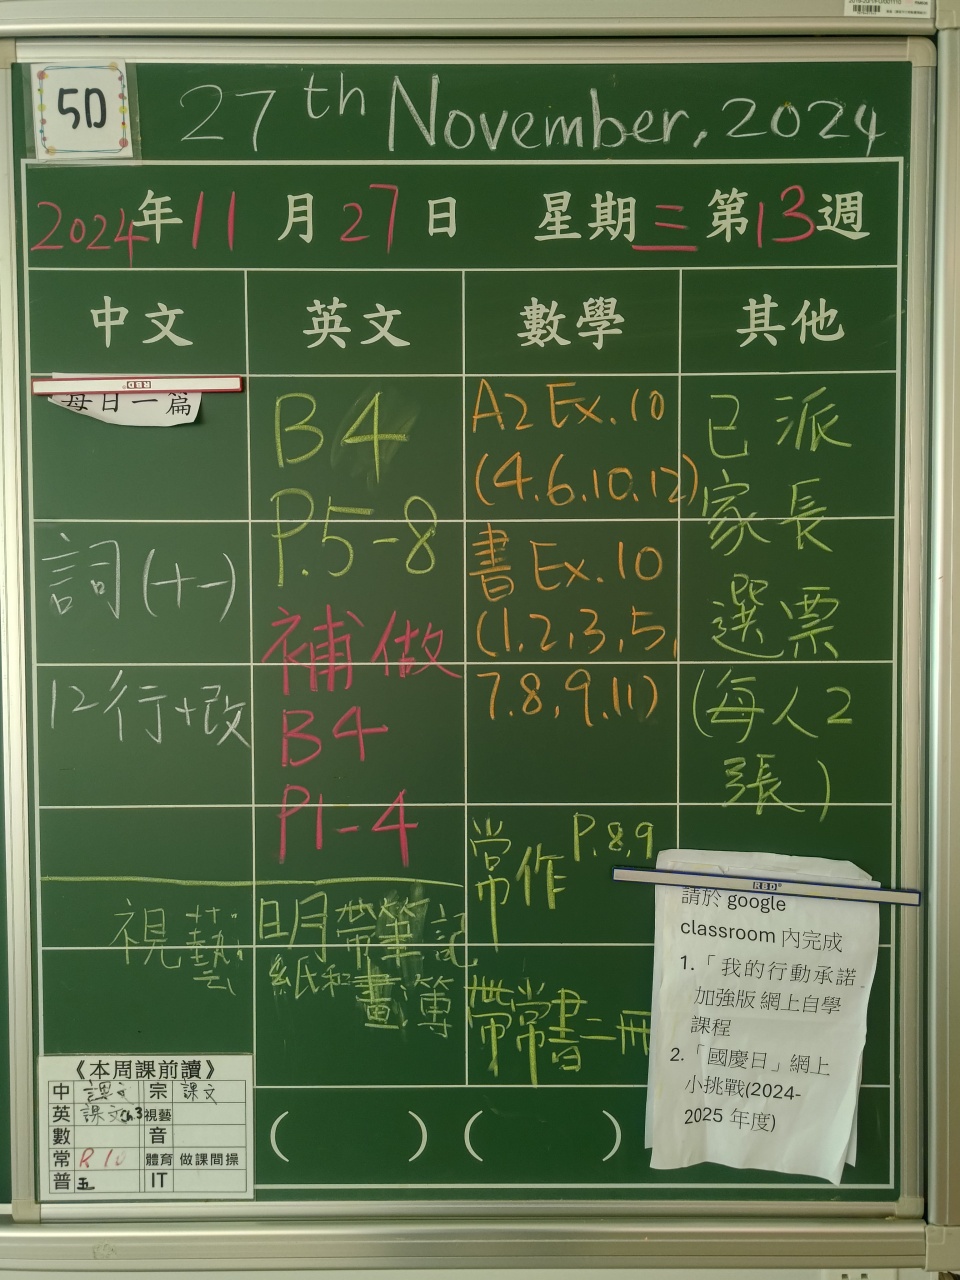 5D
27th November, 2024
2024年11月27日 星期三 第13週
中文 英文 數學 其他
每日一篇
詞(十一)
12行+改
B4
P.5-8
補做
B4
P1-4
A2 Ex.10
(4.6.10.12)
書 Ex.10
(1.2,3,5,
7.8,9.11)
常作 P.8,9
帶常書二冊
已派
家長
選票
(每人2
張)
視藝:
明日帶筆記
紙和畫簿
( ) ( )
RBD
RBD
請於 google
classroom 內完成
1.「我的行動承諾
加強版 網上自學
課程
2.「國慶日」網上
小挑戰(2024-
2025 年度)
《本周課前讀》
中 課文 宗 課文
英 課文 ch.3 視藝
數 音
常 R 10 體育 做課間操
普 五 IT